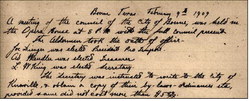 Boerne Texas February 9th 1909
A meeting of the council of the City of Boerne, was held in
the Opera House at 8 P.M. with the full council present.
The Aldermen took the oath of office.
was elected President Pro Tempore
was elected Treasurer
W King was elected Secretary
The Secretary was instructed to write to the City of
Knoxville, & obtain a copy of their by-laws Ordinances etc,
provided same did not cost more than $5.00